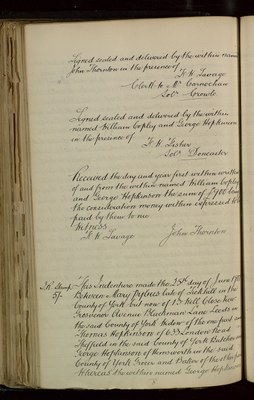 Signed sealed and delivered by the within named
John Thornton in the presence of
Clerk to Mr
Solr Crowle
Signed sealed and delivered by the within
named William Copley and George Hopkinson
in the presence of
Fisher
Solr Doncaster
Received the day and year first within written
of and from the within named William Copley
and George Hopkinson the sum of
the consideration money within expressed to be
paid by them to me
Witness
John Thornton
This Indenture made the 25th day of June
Between Mary late of Tickhill in the
County of York but now of
Grosvenor Avenue Lane Leeds in
the said County of York Widow of the one part
Thomas Hopkinson of London Road
Sheffield in the said County of York Butcher
George Hopkinson of Hemsworth in the said
County of York Grocer and Baker of the other part
Whereas the within named George Hopkinson